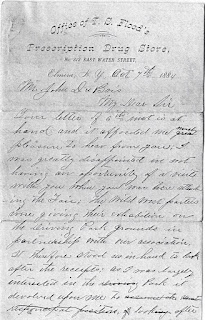 Office of T. S. Flood's
Prescription Drug Store,
No. 212 EAST WATER STREET.
Elmira, N.Y. Oct 7th 1884
Mr. John DuBois
My Dear Sir
Your letter of 6th inst is at
hand and it afforded me much
great
pleasure to hear from you; I
was greatly disappointed in not
having an opportunity of a visit
with you when you were here attend
ing the Fair; the Wild West parties
were giving their exhibition on
the Driving Park grounds in
partnership with our association.
It therefore stood us in hand to look
after the receipts, as I was largely
interested in the Driving Park it
devolved upon me to
responsible position, of looking after